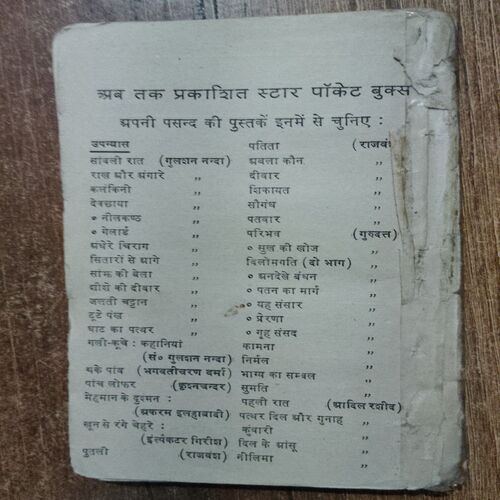 अब तक प्रकाशित स्टार पॉकेट बुक्स
अपनी पसन्द की पुस्तकें इनमें से चुनिए :
उपन्यास
सांवली रात (गुलशन नन्दा)
राख और अंगारे ,,
कलंकिनी ,,
देवछाया ,,
० नीलकण्ठ ,,
० गेलार्ड ,,
अंधेरे चिराग ,,
सितारों से आगे ,,
सांझ की बेला ,,
शीशे की दीवार ,,
जलती चट्टान ,,
टूटे पंख ,,
घाट का पत्थर ,,
गली-कूचे : कहानियां
(सं० गुलशन नन्दा)
थके पांव (भगवतीचरण वर्मा)
पांच लोफर (कृश्नचन्दर)
मेहमान के दुश्मन :
(अकरम इलाहाबादी)
खून से रंगे चेहरे :
(इंस्पेक्टर गिरीश)
पुतली (राजवंश)
पतिता (राजवंश
अबला कौन ,,
दीवार ,,
शिकायत ,,
सौगंध ,,
पतवार ,,
परिभव (गुरुदत्त)
० सुख की खोज ,,
विलोमगति (दो भाग) ,,
० अनदेखे बंधन ,,
० पतन का मार्ग ,,
० यह संसार ,,
० प्रेरणा ,,
० गृह संसद ,,
कामना ,,
निर्मल ,,
भाग्य का सम्बल ,,
सुमति ,,
पहली रात (आदिल रशीद)
पत्थर दिल और गुनाह ,,
कुंवारी ,,
दिल के आंसू ,,
नीलिमा ,,